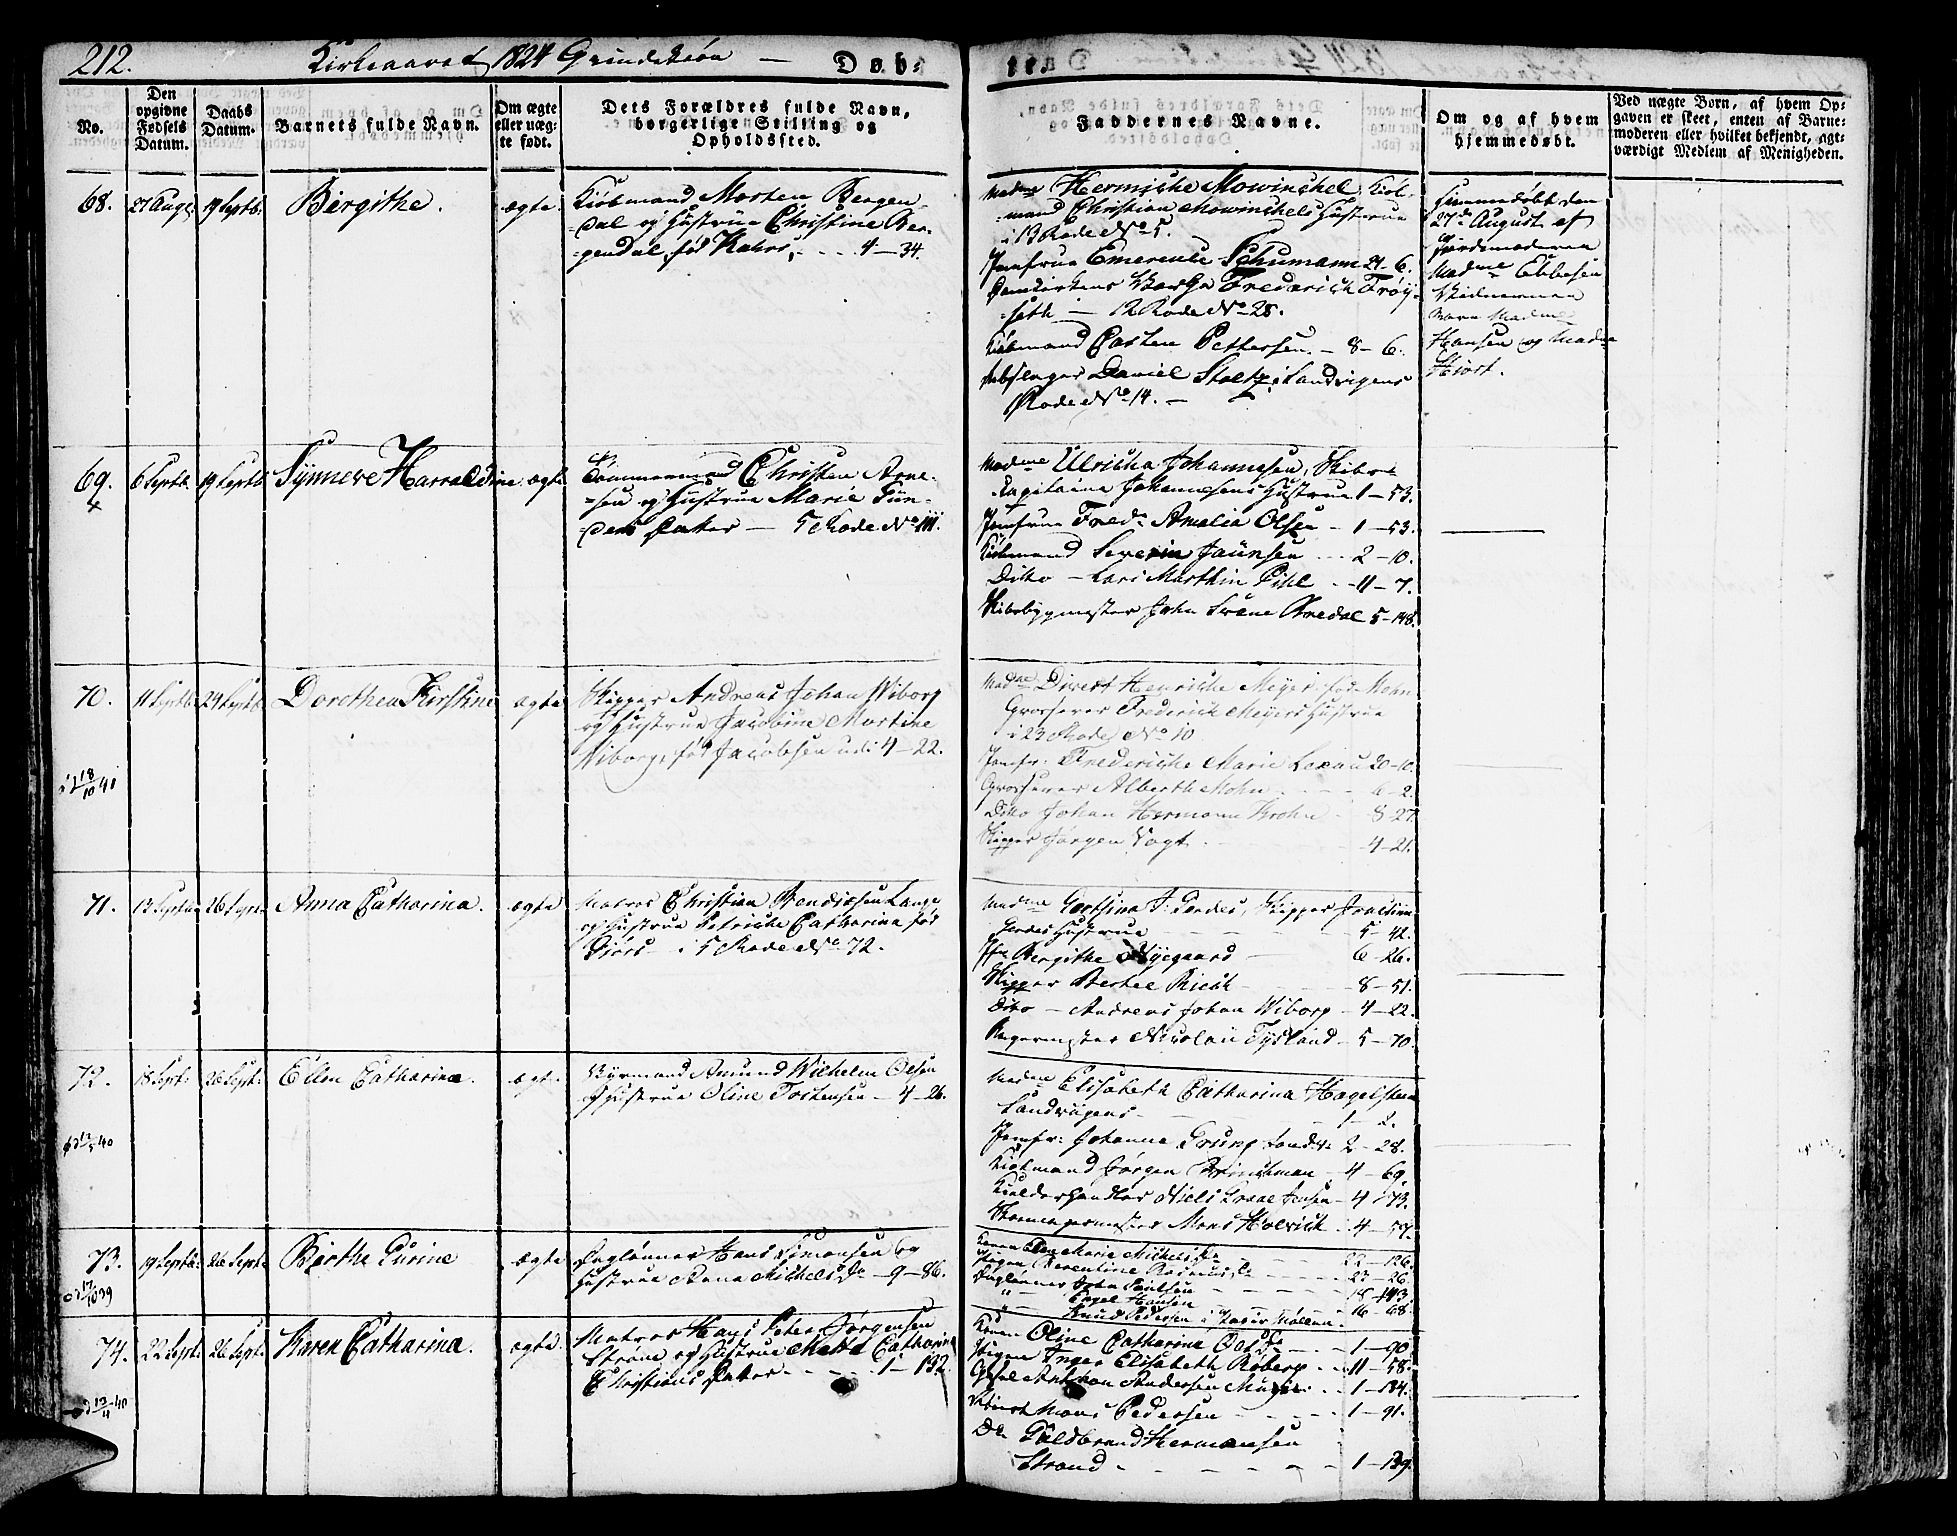 212. Kirkeaaret 1824 Døbte
No.
Den opgivne Fødsels Datum.
Daabs Datum.
Barnets fulde Navn.
Om ægte eller uægte født.
Dets Forældres fulde Navn,
borgerlige Stilling og
Opholdssted.
Faddernes Navne.
Om og af hvem
hjemmedøbt.
Ved uægte Børn, af hvem Op-
gaven er skeet, enten af Barne-
moderen eller hvilket bekjendt, agt-
værdigt Medlem af Menigheden.
68. 27 Aug: 19 Septb: Birgithe. ægte
Kiøbmand Morten Bergen-
dal og Hustrue Christine Ber-
gendal, fød Kahrs, 4-34.
Madme Hermiche Mowinchel, Kiøb-
mand Christian Mowinchels Hustrue
i 13 Rode No 5.
Jomfrue Emerense Schumann 24-6.
Frederich Frøy-
seth - 12 Rode No 28.
Kiøbmand Casten Pettersen - 8-6.
Daniel Stoltz, i Sandvigens
Rode No 14.
Hiemmedøbt den
27de August af
Jordemoderen
Madme Ebbesen
Vidnerne
vare Madme
Hansen og Madme
Hiort.
69. 6 Septb. 19 Septb Synneve Harraldine ægte
Tømmermand Christen Arne-
sen og Hustrue Marie
datter - 5 Rode No 111.
Madme Ulricha Johannesen, Skibs-
Capitaine Johannesens Hustrue 1-53.
Jomfrue Fredr: Amalia Olsen - 1-53.
Kiøbmand Severin Jaünsen 2-10.
Ditto - Lars Marthin Pihl 11-7.
Skibsbygmester John Svane Aredal 5-148.
70. 11 Septb. 24 Septb. Dorothea Kirstine ægte
Skipper Andreas Johan Wiborg
og Hustrue Jacobine Martine
Wiborg, fød Jacobsen udi 4-22.
18/10 41
Madme Divert Henriche Meyer, fød Mohn
Grosserer Frederich Meyers Hustrue
i 23 Rode No 10
Jomfr: Frederiche Marie Lexau 20-10.
Grosserer Alberth Mohn 6-2.
Ditto Johan Hermann Krohn 8-27
Skipper Jørgen Vogt 4-21.
71. 13 Septb 26 Sept. Anna Catharina. ægte
Matros Christian Bendixsen Lange
og Hustrue Petriche Catharina fød
i 5 Rode No 72.
Madme Gerthina J: Gerdes, Skipper
Gerdes Hustrue 5-42.
Jfr Birgithe Nyegaard 6-26.
Skipper Bertel Rieck 8-51.
Ditto - Andreas Johan Wiborg - 4-22.
Nicolai Tysland - 5-70.
72. 18 Sept: 26 Sept: Ellen Catharina. ægte
Styrmand Amund Wilhelm Olsen
og Hustrue Oline Tostensen - 4-26.
12/5 40
Madme Elisabeth Catharina Hagelsteen
Sandvigens 1-2.
Jomfr: Johanna Grung 2-28.
Kiøbmand Jørgen Brinchman 4-69.
Kielderhandler Niels Graae Jensen - 4-73.
Mons Holvich - 4-57.
73. 19 Septb: 26 Sept: Birthe Gurine ægte
Dagløner Hans Simonsen og
Hustrue Anna Michelsdr - 9-86.
17/10 39
Konen Ellen Marie Michelsdr 22-126.
Pigen Berentine Rasmusdr 23-26.
Dagløner John Poülsen 18-143
Engel Hansen 16-68.
Knud Pedersen i
74. 22 Sept: 26 Sept: Karen Catharina. ægte
Matros Hans Peter Jørgensen
Strøm og Hustrue Mette Catharine
Christiansdatter 1-132
12/4 40
Konen Oline Catharine 1-90.
Pigen Inger Elisabeth Røberg 11-58.
Andersen 1-134.
Mons Pedersen 1-91.
Do Güldbrand Hermansen
Strand 1-139.